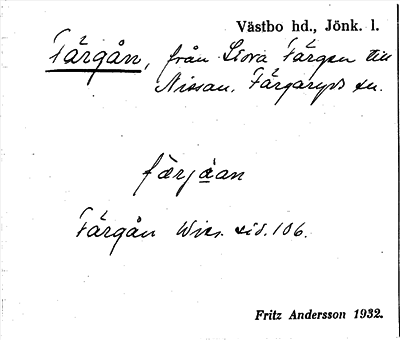 Västbo hd., Jönk. l.
Färgån, från Stora Färgen till
Nissan. Färgaryds sn.
färjàan
Färgån Wies. sid. 106.
Fritz Andersson 1932.